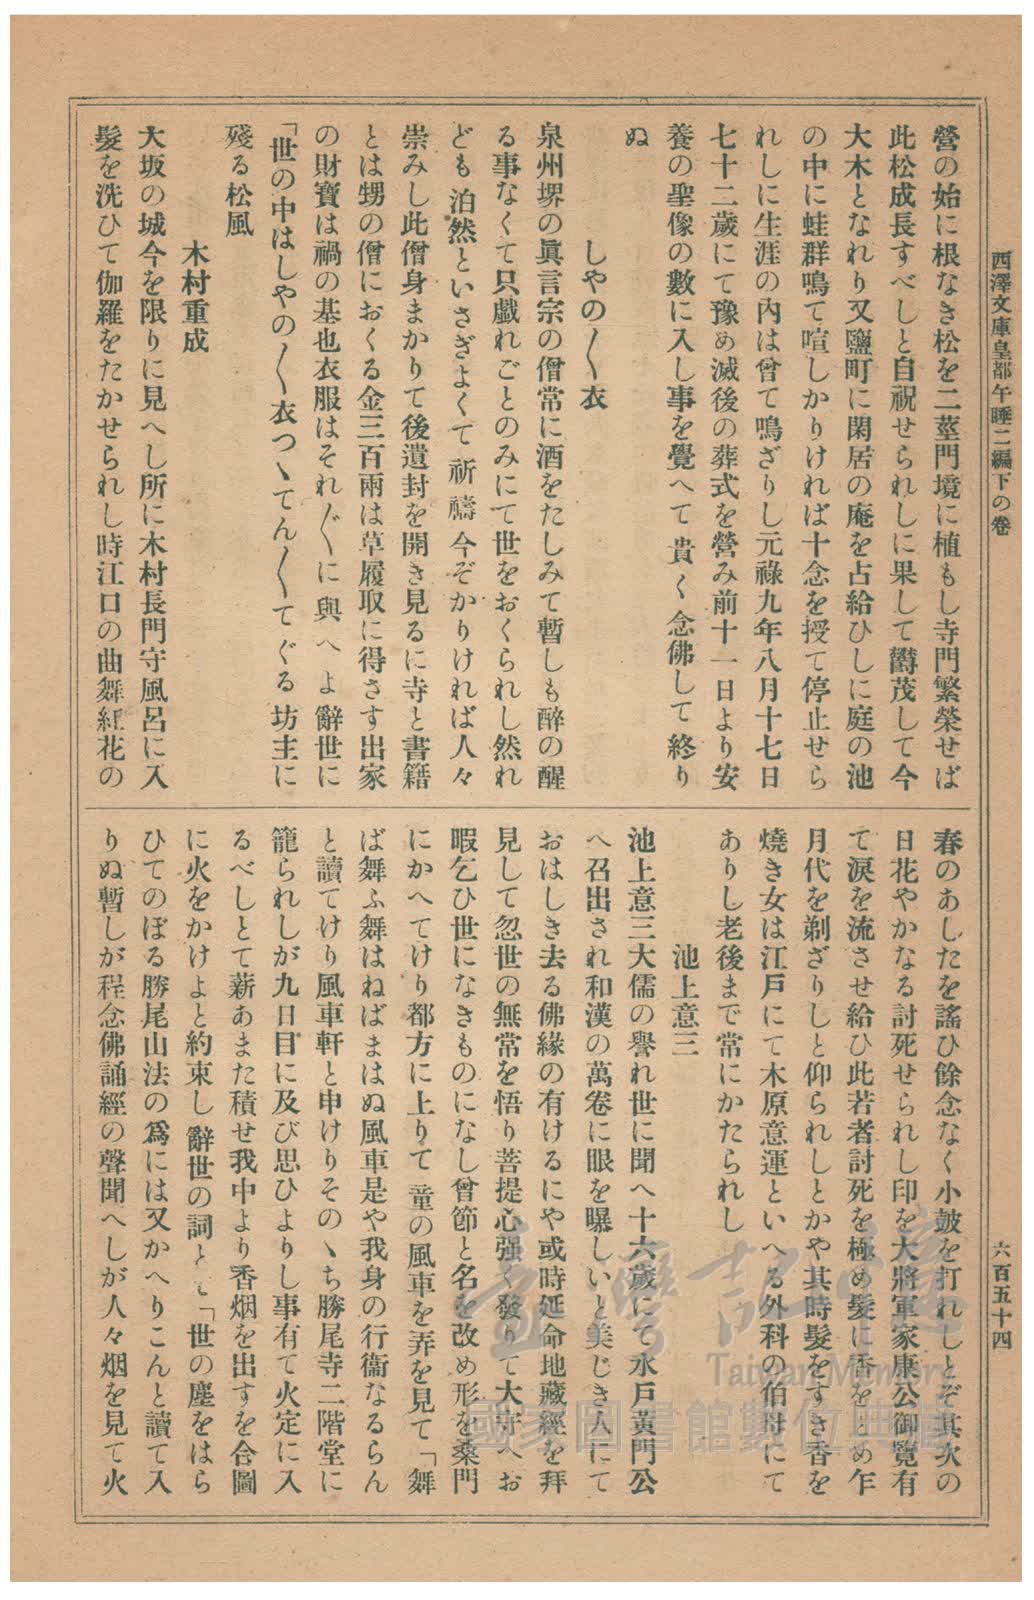 西澤文庫皇都午睡二編下の卷
六百五十四
營の始に根なき松を二莖門境に植もし寺門繁榮せば
此松成長すべしと自祝せられしに果して欝茂して今
大木となれり又鹽町に閑居の庵を占給ひしに庭の池
の中に蛙群鳴て喧しかりければ十念を授て停止せら
れしに生涯の內は曾て鳴ざりし元祿九年八月十七日
七十二歲にて豫め滅後の葬式を營み前十一日より安
養の聖像の數に入し事を覺へて貴く念佛して終り
ぬ
しやの〱衣
泉州堺の眞言宗の僧常に酒をたしみて暫しも醉の醒
る事なくて只戲れごとのみにて世をおくられし然れ
ども泊然といさぎよくて祈禱今ぞかりければ人々
崇みし此僧身まかりて後遺封を開き見るに寺と書籍
とは甥の僧におくる金三百兩は草履取に得さす出家
の財寶は禍の基也衣服はそれ〲に與へよ辭世に
「世の中はしやの〱衣つゝてん〱てぐる坊主に
殘る松風
木村重成
大坂の城今を限りに見へし所に木村長門守風呂に入
髮を洗ひて伽羅をたかせられし時江口の曲舞紅花の
春のあしたを謠ひ餘念なく小皷を打れしとぞ其次の
日花やかなる討死せられし印を大將軍家康公御覽有
て淚を流させ給ひ此若者討死を極め髮に香をとめ乍
月代を剃ざりしと仰られしとかや其時髮をすき香を
燒き女は江戶にて木原意運といへる外科の伯母にて
ありし老後まで常にかたられし
池上意三
池上意三大儒の譽れ世に聞へ十六歲にて水戶黃門公
へ召出され和漢の萬卷に眼を曝しいと美じき人にて
おはしき去る佛緣の有けるにや或時延命地藏經を拜
見して忽世の無常を悟り菩提心强く發りて大守へお
暇乞ひ世になきものになし曾節と名を改め形を桑門
にかへてけり都方に上りて童の風車を弄を見て「舞
ば舞ふ舞はねばまはぬ風車是や我身の行衞なるらん
と讀てけり風車軒と申けりそのゝち勝尾寺二階堂に
籠られしが九日目に及び思ひよりし事有て火定に入
るべしとて薪あまた積せ我中より香烟を出すを合圖
に火をかけよと約束し辭世の詞とて「世の塵をはら
ひてのぼる勝尾山法の爲には又かへりこんと讀て入
りぬ暫しが程念佛誦經の聲聞へしが人々烟を見て火
臺灣記憶
Taiwan Memory
國家圖書館數位典藏